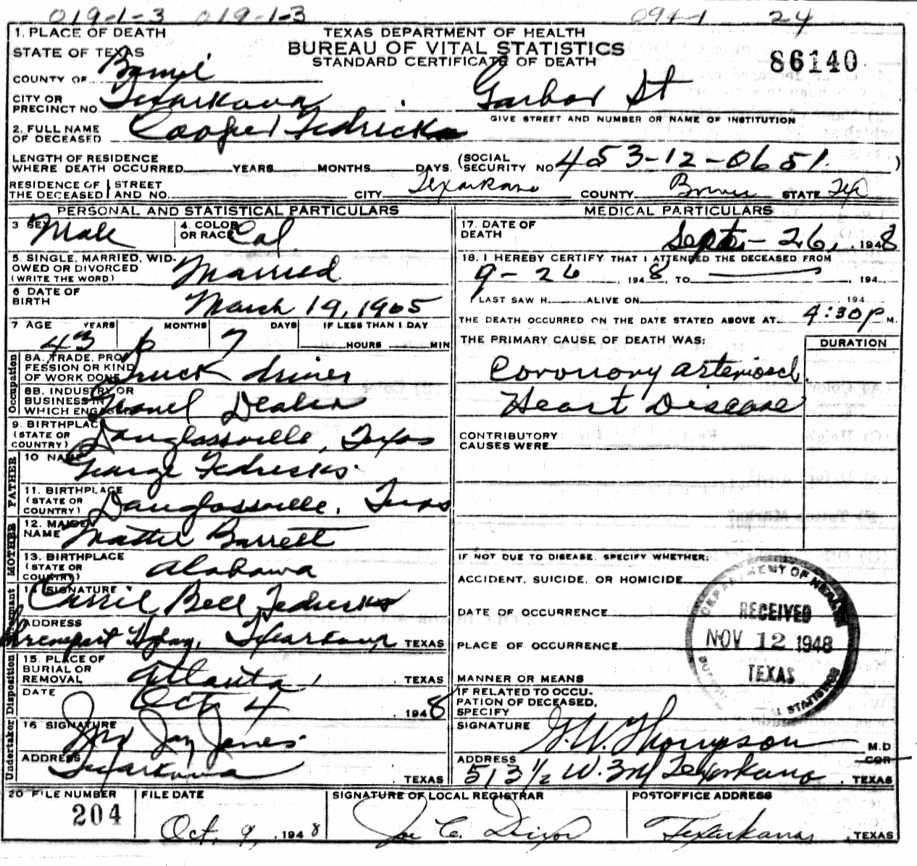 019-1-3 019-1-3 091-1 24
1. PLACE OF DEATH
STATE OF TEXAS
TEXAS DEPARTMENT OF HEALTH
BUREAU OF VITAL STATISTICS
STANDARD CERTIFICATE OF DEATH
86140
COUNTY OF
CITY OR PRECINCT NO. Texarkana, St
GIVE STREET AND NUMBER OR NAME OF INSTITUTION
2. FULL NAME OF DECEASED Cooper Fedricks
LENGTH OF RESIDENCE WHERE DEATH OCCURRED YEARS MONTHS DAYS (SOCIAL SECURITY NO 453-12-0651.)
RESIDENCE OF THE DECEASED STREET AND NO. CITY Texarkana COUNTY Bowie STATE Tex
PERSONAL AND STATISTICAL PARTICULARS
3 SEX Male 4. COLOR OR RACE Col
5. SINGLE, MARRIED, WIDOWED OR DIVORCED (WRITE THE WORD) Married
6 DATE OF BIRTH March 19, 1905
7 AGE YEARS MONTHS DAYS IF LESS THAN 1 DAY
43 6 7 HOURS MIN
Occupation
8A. TRADE, PROFESSION OR KIND OF WORK DONE Truck driver
8B. INDUSTRY OR BUSINESS IN WHICH ENGAGED Dealer
9. BIRTHPLACE (STATE OR COUNTRY) Douglassville, Texas
FATHER
10 NAME George Fedricks
11. BIRTHPLACE (STATE OR COUNTRY) Douglassville, Texas
MOTHER
12. MAIDEN NAME Mattie Barrett
13. BIRTHPLACE (STATE OR COUNTRY) Alabama
Informant
14 SIGNATURE Carrie Bell Fedricks
ADDRESS Texarkana, TEXAS
Disposition
15. PLACE OF BURIAL OR REMOVAL Atlanta, TEXAS
DATE Oct 4 1948
Undertaker
16 SIGNATURE Jay Jones
ADDRESS Texarkana TEXAS
MEDICAL PARTICULARS
17. DATE OF DEATH Sept - 26, 1948
18. I HEREBY CERTIFY THAT I ATTENDED THE DECEASED FROM
9-26, 1948, TO 194
I LAST SAW H ALIVE ON 194
THE DEATH OCCURRED ON THE DATE STATED ABOVE AT 4:30 P M.
THE PRIMARY CAUSE OF DEATH WAS: DURATION
Coronary arterioscl
Heart Disease
CONTRIBUTORY CAUSES WERE:
IF NOT DUE TO DISEASE, SPECIFY WHETHER:
ACCIDENT, SUICIDE, OR HOMICIDE
DATE OF OCCURRENCE
PLACE OF OCCURRENCE
MANNER OR MEANS
IF RELATED TO OCCUPATION OF DECEASED, SPECIFY
DEPARTMENT OF HEALTH
RECEIVED
NOV 12 1948
TEXAS
STATISTICS
SIGNATURE G.W. Thompson M.D
COR
ADDRESS 513 1/2 W. 3rd Texarkana, TEXAS
20 FILE NUMBER FILE DATE SIGNATURE OF LOCAL REGISTRAR POSTOFFICE ADDRESS
204 Oct. 9, 1948 Joe C. Texarkana, TEXAS